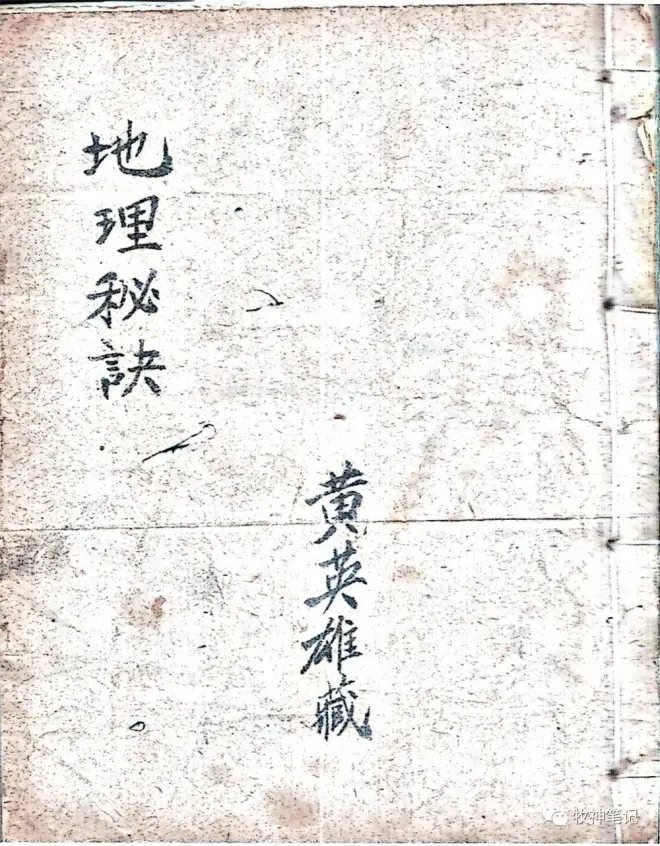 地理秘訣
黄英雄藏
牧神笔记